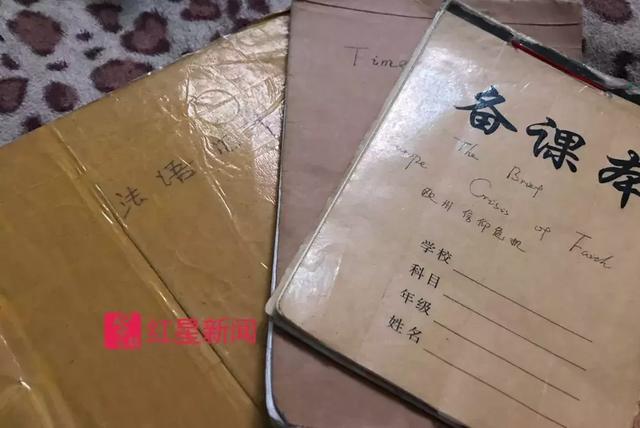 法语
Time
备课本
The Brief
Europe Crisis of Faith
欧州信仰危机
学校
科目
年级
姓名
红星新闻